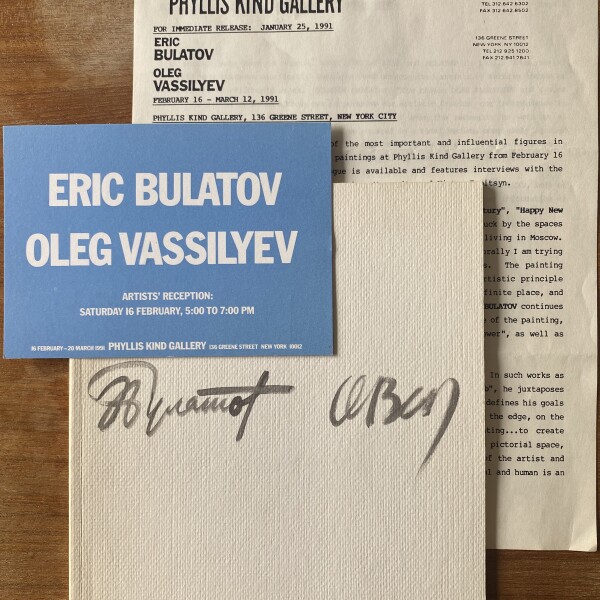 PHYLLIS KIND GALLERY
TEL 312 642 6302
FAX 312 642 8502
FOR IMMEDIATE RELEASE: JANUARY 25, 1991
ERIC
BULATOV
OLEG
VASSILYEV
136 GREENE STREET
NEW YORK NY 10012
TEL 212 925 1200
FAX 212 941 7841
FEBRUARY 16 - MARCH 12, 1991
PHYLLIS KIND GALLERY, 136 GREENE STREET, NEW YORK CITY
of the most important and influential figures in
paintings at Phyllis Kind Gallery from February 16
gue is available and features interviews with the
itsyn.
ury", "Happy New
uck by the spaces
living in Moscow.
rally I am trying
The painting
rtistic principle
finite place, and
BULATOV continues
of the painting,
wer", as well as
In such works as
he juxtaposes
defines his goals
the edge, on the
ting...to create
pictorial space,
of the artist and
l and human is an
ERIC BULATOV
OLEG VASSILYEV
ARTISTS' RECEPTION:
SATURDAY 16 FEBRUARY, 5:00 TO 7:00 PM
16 FEBRUARY–20 MARCH 1991 PHYLLIS KIND GALLERY 136 GREENE STREET NEW YORK 10012
ЭБулатов ОВас